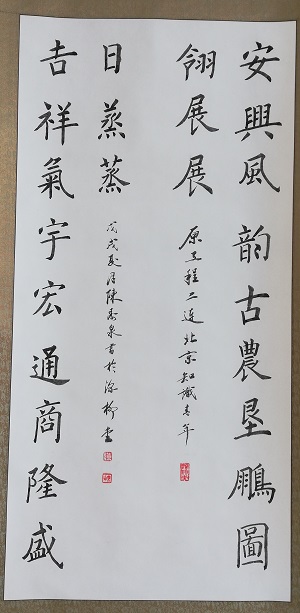 安興風韵古農垦鵬圖
翎展展
原工程二連北京知識青年
吉祥氣宇宏通商隆盛
日蒸蒸
戊戌夏月陳泉書於深柳堂